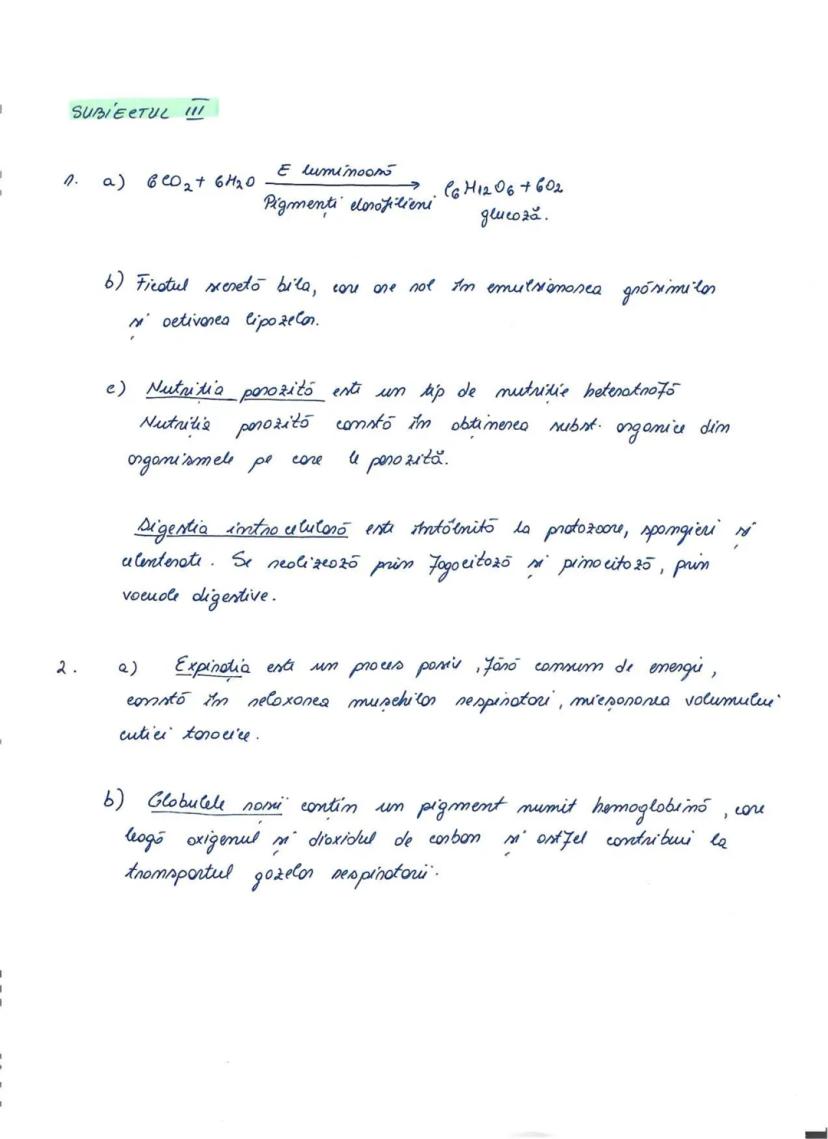 SUBIECTUL III
1. a) 6CO2 + 6H2O E luminoasă → C6H12O6 + 6O2
Pigmenți clorofilieni glucoză.
b) Ficatul secretă bila, care are rol în emulsionarea grăsimilor
și activarea lipazelor.
c) Nutriția parazită este un tip de nutriție heterotrofă
Nutriția parazită constă în obținerea subst. organice din
organismele pe care le parazită.
Digestia intracelulară este întâlnită la protozoare, spongieri și
celenterate. Se realizează prin fagocitoză și pinocitoză, prin
vacuole digestive.
2. a) Expirația este un proces pasiv, fără consum de energie,
constă în relaxarea mușchilor respiratori, micșorarea volumului
cutiei toracice.
b) Globulele roșii conțin un pigment numit hemoglobină, care
leagă oxigenul și dioxidul de carbon și astfel contribuie la
transportul gazelor respiratorii.